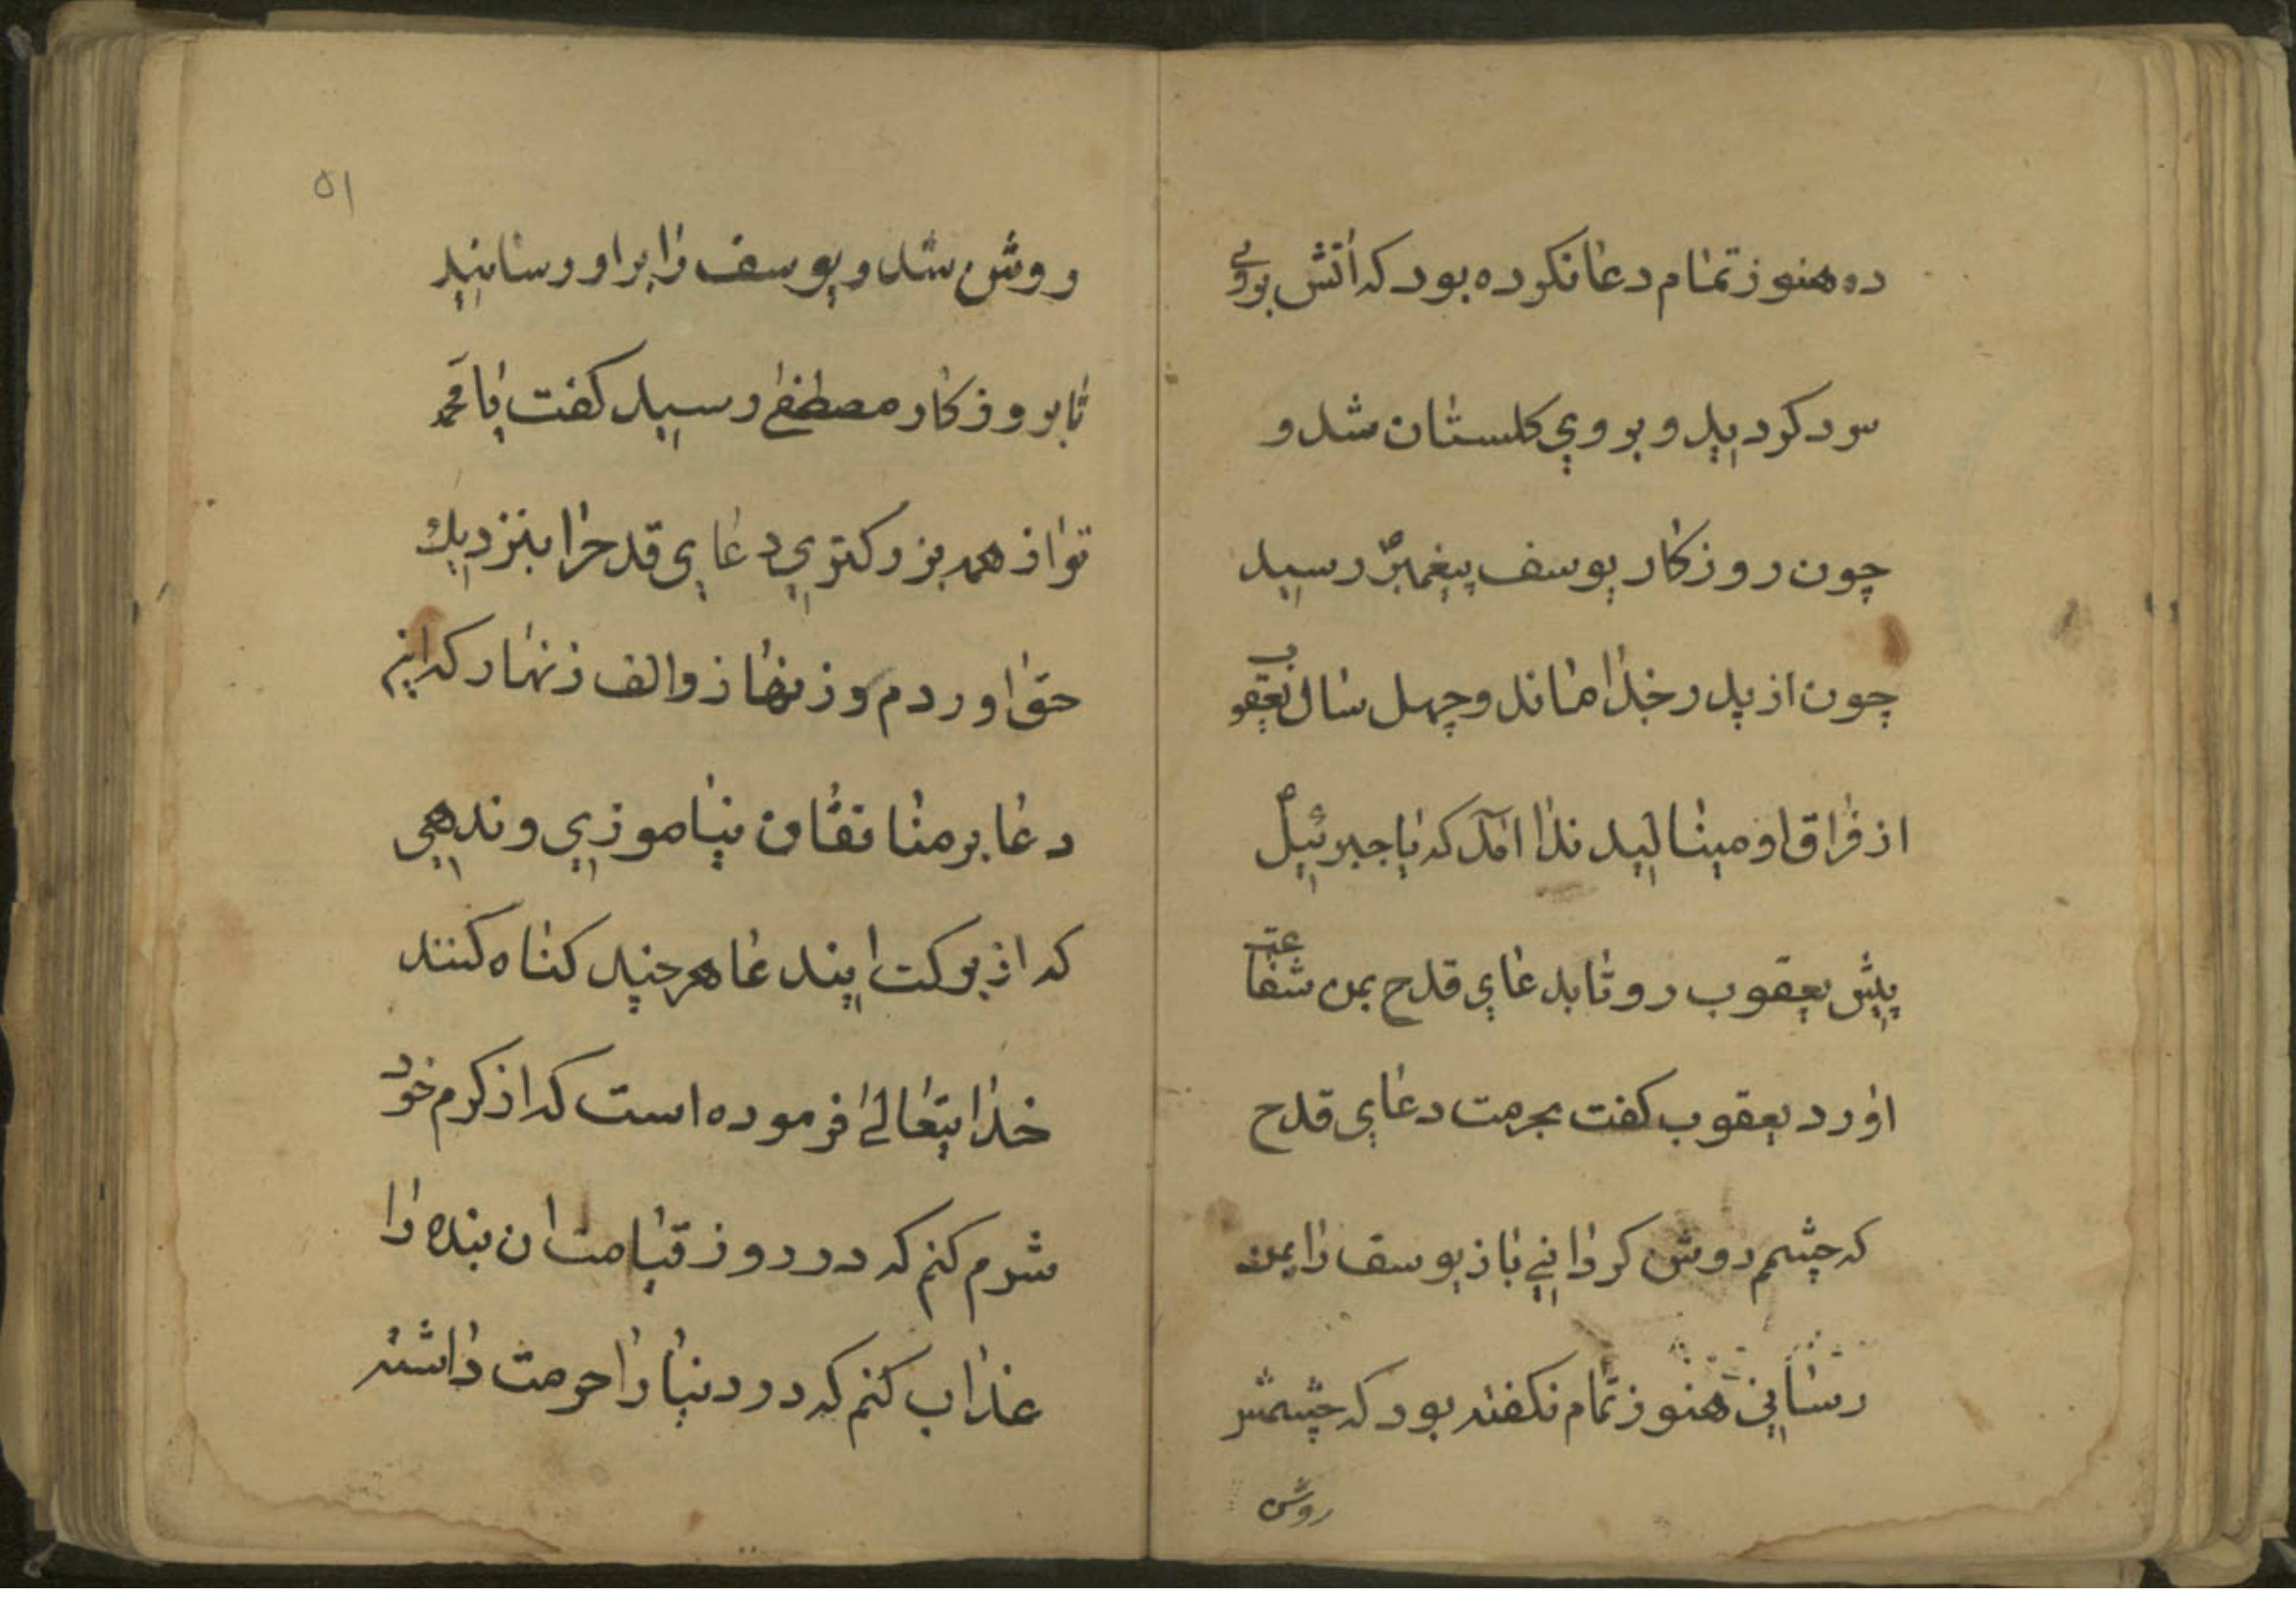 ده هنوز تمام دعا نکرده بود که اتش بروی
سرد کردید و بروی کلستان شد و
چون روزکار یوسف پیغمبر رسید
چون از پدر جدا ماند و چهل سال یعقوب
از فراق او مینالید ندا امد که یا جبرئیل
پیش یعقوب رو تا بدعای قدح بمن شفاعت
اورد یعقوب کفت بحرمت دعای قدح
که چشمم روشن کردانی باز یوسف را بمن
رسانی هنوز تمام نکفته بود که چشمش
روشن
۵۱
روشن شد و یوسف را براو رسانید
تا بروزکار مصطفی رسید کفت یا محمد
تو از همه بزرکتری دعای قدح را بنزدیک
حق اوردم و زینهاز والف زنهار که این
دعا بر منافقان نیاموزی وندهی
که از برکت ایندعا هرچند کناه کنند
خدایتعالی فرموده است که از کرم خود
شرم کنم که در روز قیامت ان بنده را
عذاب کنم که در دنیا را حرمت داشته